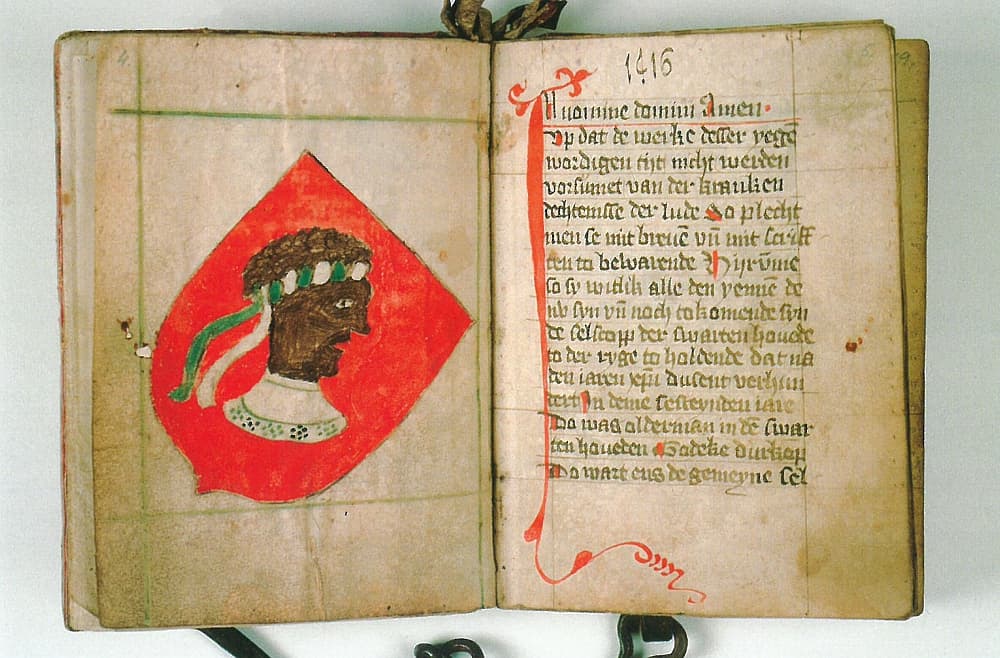 4.
5.
9.
1416
In nomine domini Amen.
Vp dat de werke desser yegē
wordigen tijt nicht werden
vorsumet van der kranken
dechtenisse der lude So plecht
men se mit breuē vn̄ mit scriff
ten to bewarende Hyrv̄me
so sy witlik alle den yennē de
nv syn vn̄ noch tokomende syn
de selscopp der swarten houede
to der ryge to holdende dat na
den iaren xp̄i dusent verhun
dert In deme sesteynden iare
Do was olderman in de swar
ten houeden Godeke durkop
Do wart ens de gemeyne sel